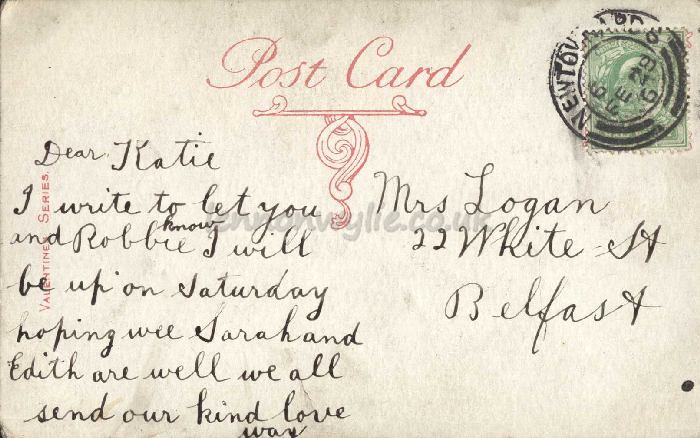 Post Card
Dear Katie
I write to let you
and Robbie know I will
be up on Saturday
hoping wee Sarah and
Edith are well we all
send our kind love
Mrs Logan
22 White St
Belfast
VALENTINES SERIES.
lennonwylie.co.uk